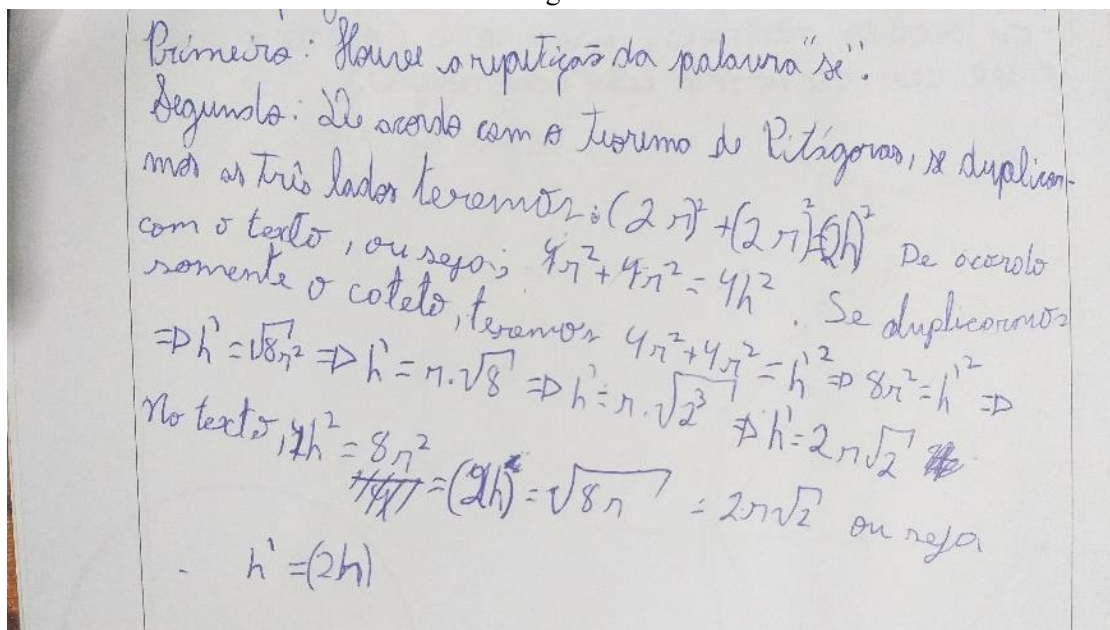 Primeiro: Houve a repetição da palavra "se".
Segundo: De acordo com o teorema de Pitágoras, se duplicar-
mos os três lados teremos: (2r)² + (2r)² = (2h)² De acordo
com o texto, ou seja, 4r² + 4r² = 4h². Se duplicarmos
somente o cateto, teremos 4r² + 4r² = h'² ⇒ 8r² = h'² ⇒
⇒ h' = √8r² ⇒ h' = r.√8 ⇒ h' = r.√2³ ⇒ h' = 2r√2
No texto, 4h² = 8r²
= (2h) = √8r = 2r√2 ou seja
h' = (2h)